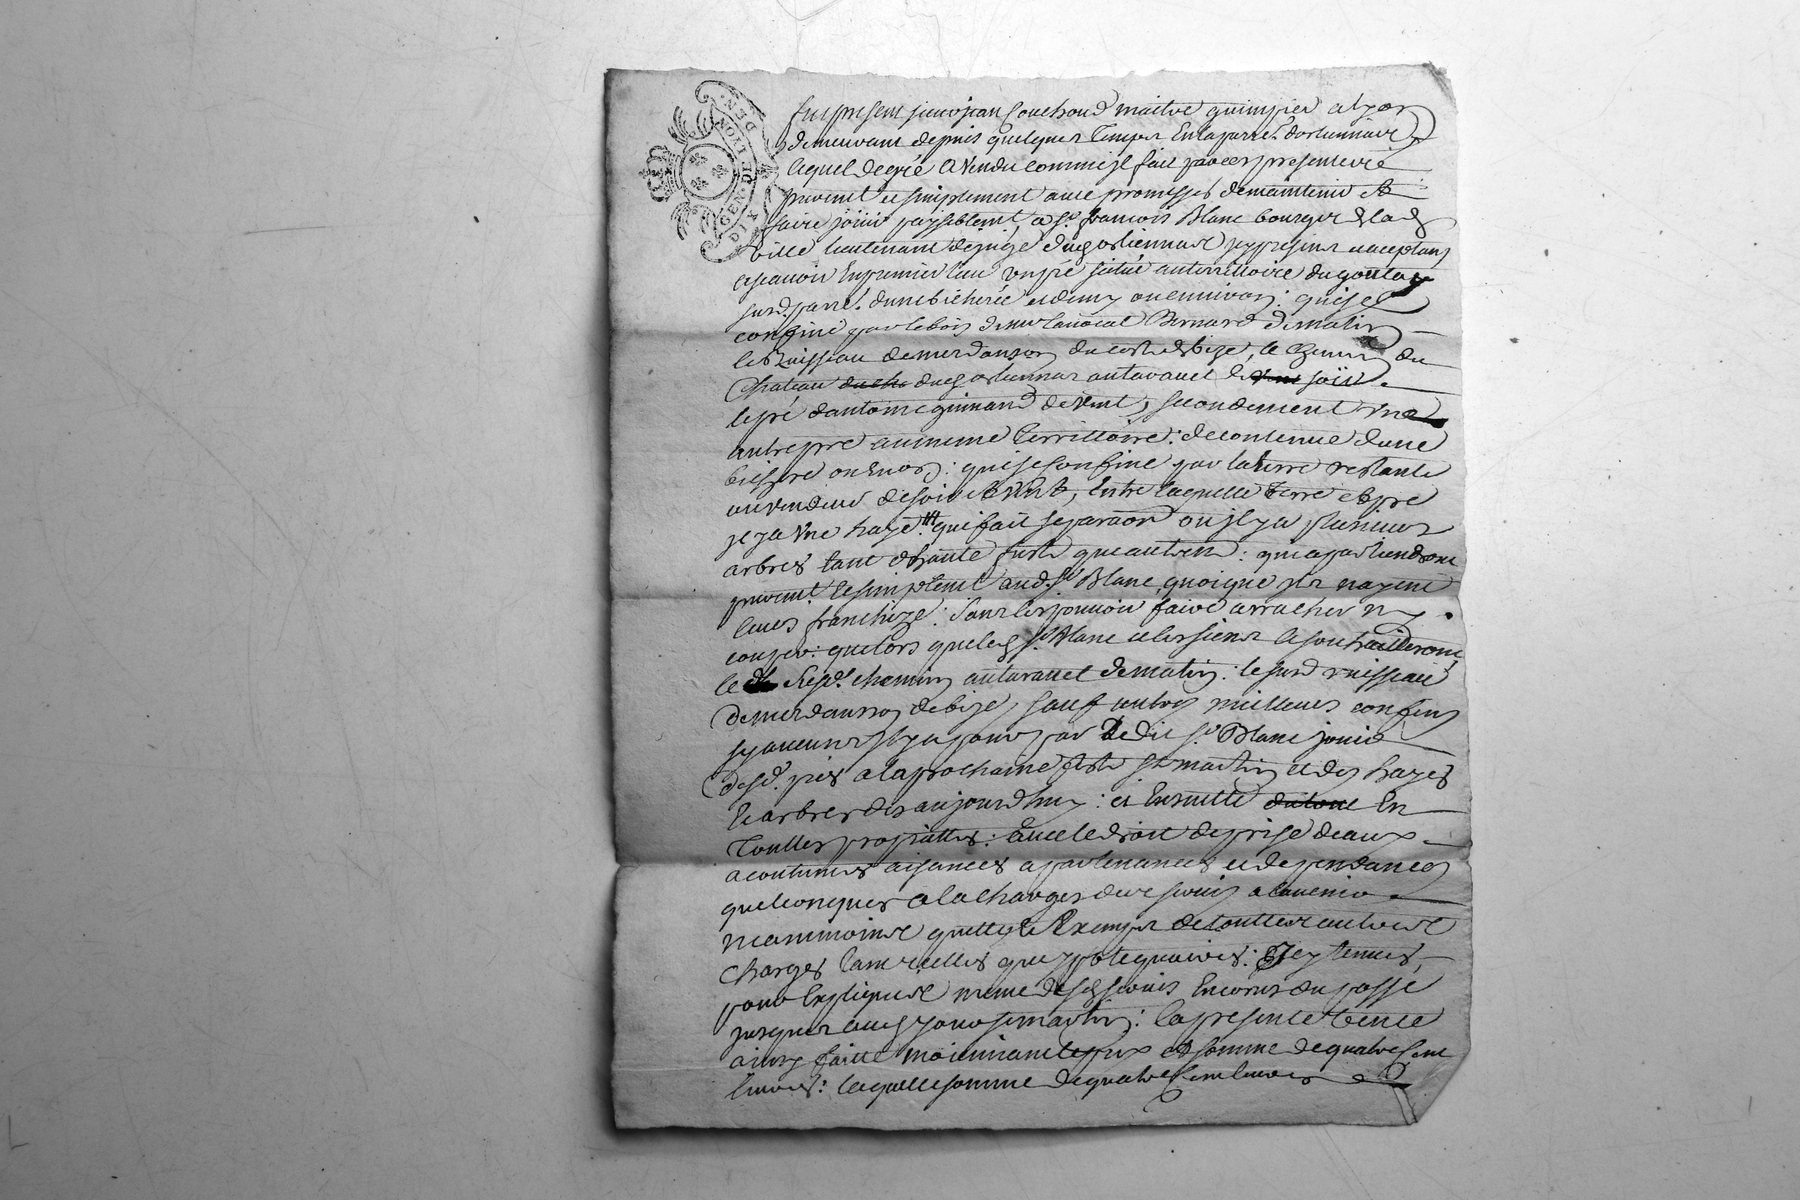 GEN. DE LYON
DIX DEN.
fut present sieur jean Couchoud maitre guimpier a lyon
demeurant depuis quelques temps en la parre. d
lequel de gré a vendu comme il fait par ces presentes
purement et simplement avec promesses de maintenir et
faire jouir paysiblemt. a Sr. francois Blanc bourgeois de lad
ville lieutenant de juge present acceptant
ascavoir en premier lieu un pré situé au territoire du
surd. parre. d'une bicherée et demy ou environ: qui se
confine par le bois de mr lavocat Bernard de matin
le Ruisseau de merdanson du costé de bize, le chemin du
Chateau au travail de soir
le pré d'antoine guinand de vent, secondement un
autre pré au meme territoire: de contenue d'une
ou env: qui se confine par la terre restante
au vendeur de soir et vent, entre laquelle terre et pré
il y a une haye qui fait separaon ou il y a plusieurs
arbres tant d'haute fust que autres: qui apartiendront
purement. et simplemt aud. Sr Blanc, quoique ils nayent
leurs franchize: sans les pouvoir faire arracher ny
couper: que lors que led Sr. Blanc et les siens le souhaitteront
le Susd. chemin au travail de matin: le surd ruisseau
de merdanson de bize, sauf autres meilleurs confins
sy aucuns il y a pour par Le dit Sr. Blanc jouir
desd. prés a la prochaine feste St martin et des hayes
et arbres des aujourd'huy: et Ensuitte en
touttes proprietés: avec le droit de prise d'eaux
acoutumés aisances apartenances et dependances
quelconques a la charge des servis a l'avenir
neanmoins quitte et exempt de touttes autres
charges tant réelles que ypotequaires: 
pour Expliquer meme desd servis Encourus du passé
jusques aud jour St martin: la presente vente
ainsy faitte moiennant le prix et somme de quatre Cent
livres: laquelle somme de quatre Cent livres